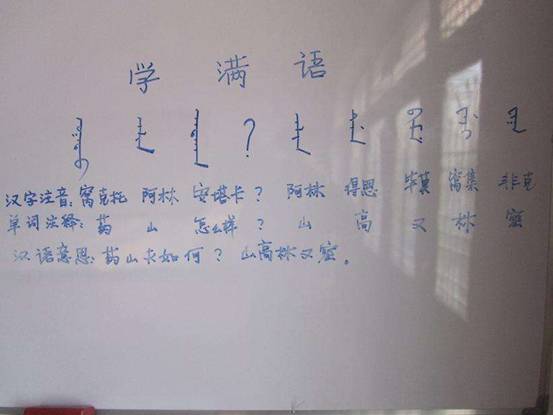 学 满 语
?
汉字注音: 窝克托 阿林 安塔卡? 阿林 得恩 毕莫 窝集 非克
单词注释: 药 山 怎么样? 山 高 又 林 密
汉语意思: 药山夫如何? 山高林又密。